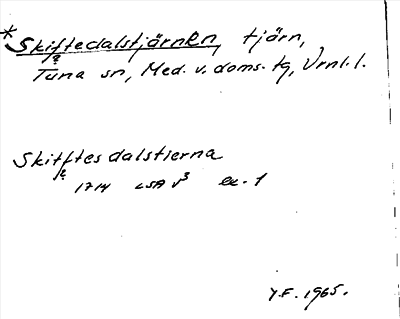 *Skiftedalstjärnen, tjärn,
?
Tuna sn, Med. v. doms. tg, Vrml. l.
Skitftes dalstierna
?
1714 LSA V3 ex. 1
Y.F. 1965.